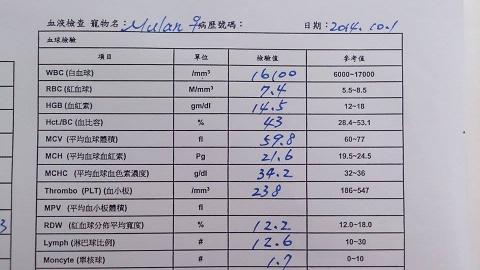 血液檢查 寵物名: Mulan ♀ 病歷號碼: 日期: 2014.10.1
血球檢驗
項目 單位 檢驗值 參考值
WBC (白血球) /mm³ 16100 6000~17000
RBC (紅血球) M/mm³ 7.4 5.5~8.5
HGB (血紅素) gm/dl 14.5 12~18
Hct./BC (血比容) % 43 28.4~53.1
MCV (平均血球體積) fl 59.8 60~77
MCH (平均血球血紅素) Pg 21.6 19.5~24.5
MCHC (平均血球血色素濃度) g/dl 34.2 32~36
Thrombo (PLT) (血小板) /mm³ 238 186~547
MPV (平均血小板體積) fl
RDW (紅血球分佈平均寬度) % 12.2 12.0~18.0
Lymph (淋巴球比例) # 12.6 10~30
Moncyte (單核球) # 1.7 0~10